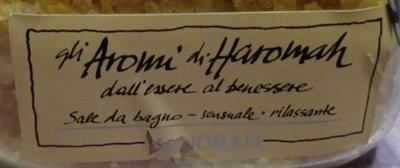 gli Aromi di Haromah
dall'essere al benessere
Sale da bagno - sensuale · rilassante